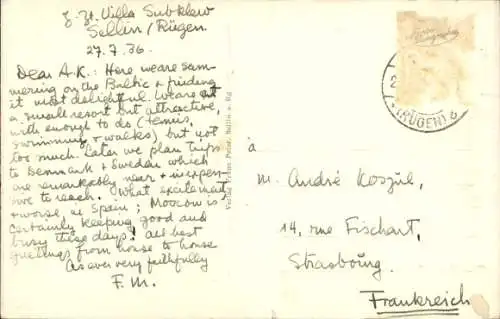 z. Zt. Villa Subklew
Sellin/Rügen.
27.7.36.
Dear A.K.: Here we are sum-
mering on the Baltic + finding
it most delightful. We are at
a small resort but attractive,
with enough to do (tennis,
swimming + walks) but not
too much. Later we plan trips
to Denmark + Sweden which
are remarkably near + inexpen-
sive to reach. What excitement,
+ worse, in Spain; Moscow is
certainly keeping good and
busy these days! All best
greetings from house to house
As ever very faithfully
F.M.
(RÜGEN)
à
M. André Koszul,
14, rue Fischart,
Strasbourg.
Frankreich